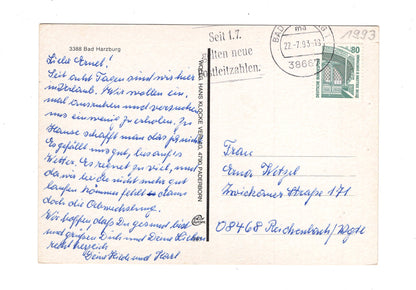 1993
3388 Bad Harzburg
Seit 1.7.
gelten neue
Postleitzahlen.
BAD
22.-7.93-
38667
80
Liebe Erna!
Seit acht Tagen sind wir hier
im Urlaub. Wir wollen ein-
mal ausruhen und versuchen
uns ein wenig zu erholen. Zu
Hause schafft man das ja nicht.
Es gefällt uns gut, bis aufs
Wetter. Es regnet zu viel, und
da wir beide nicht mehr gut
laufen können fehlt dann
doch die Abwechslung.
Wir hoffen, daß Du gesund bist
und grüßen Dich und Deine Lieben
recht herzlich
Deine Hilde und Horst
VERLAG HANS KLOCKE 4790 PADERBORN
Frau
Erna Wetzel
Zwickauer Straße 171
08468 Reichenbach/Vogtl.